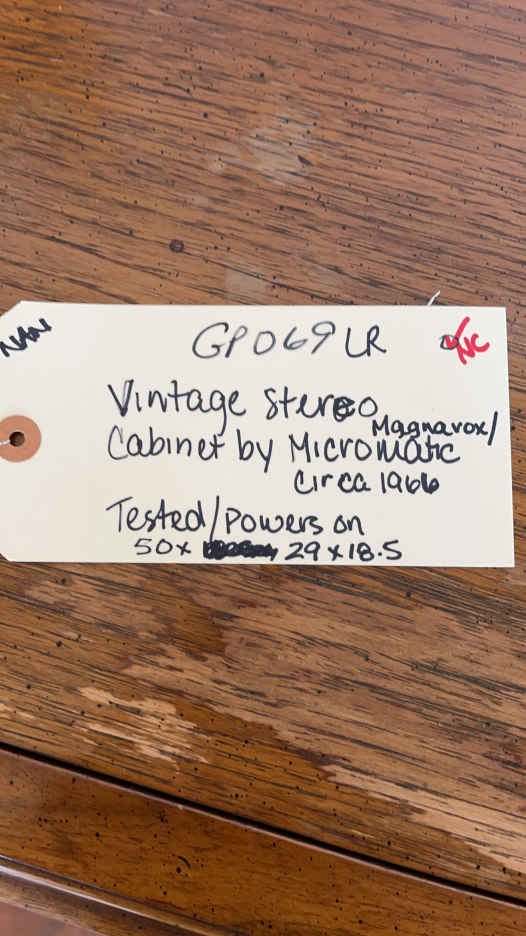 GP069 LR
Vintage Stereo
Magnavox/
Cabinet by Micromatic
Circa 1966
Tested/Powers on
50x 29x18.5